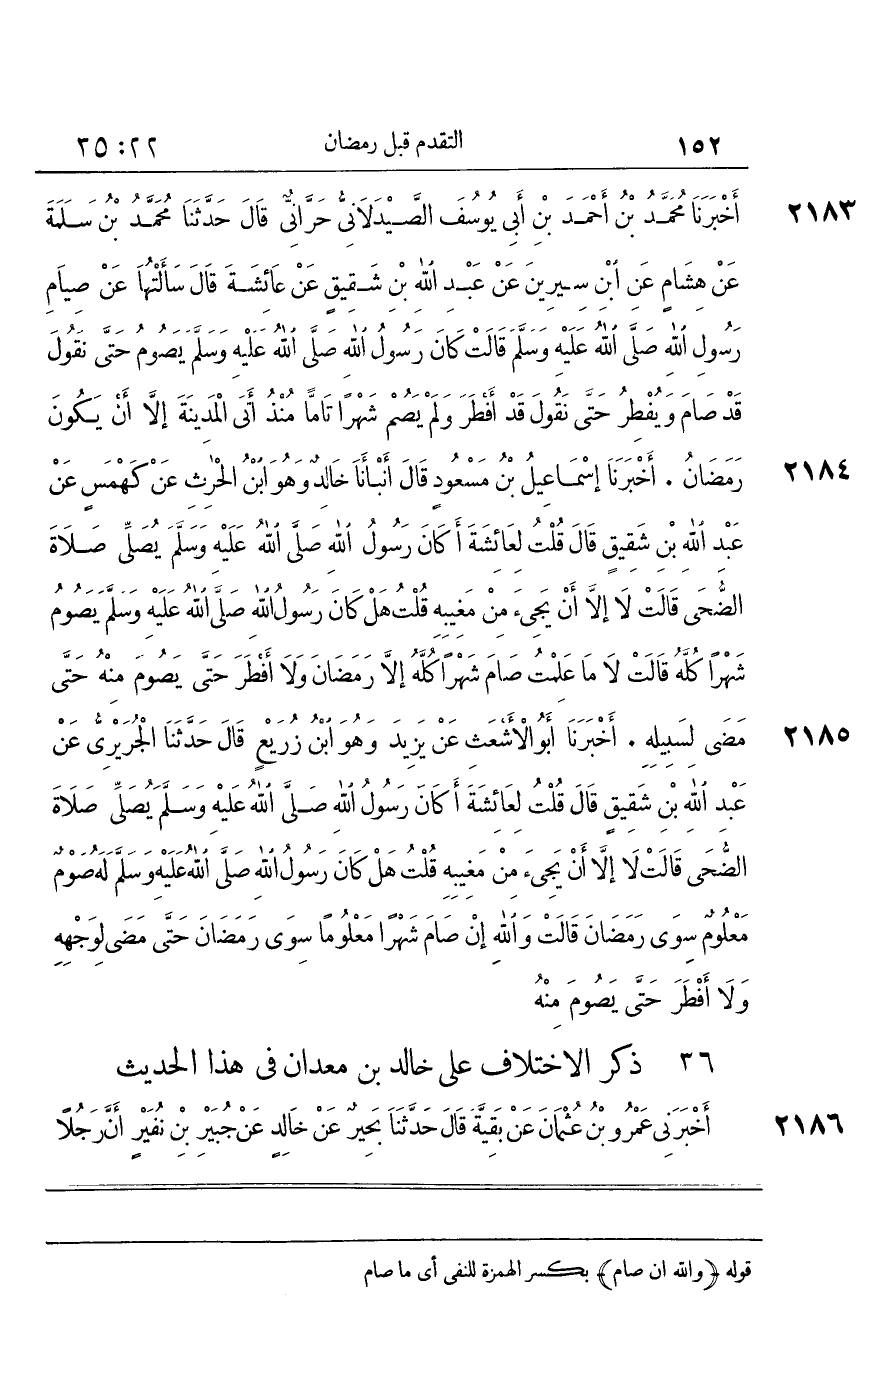 ١٥٢ التقدم قبل رمضان ٢٢: ٣٥
٢١٨٣ أَخْبَرَنَا مُحَمَّدُ بْنُ أَحْمَدَ بْنِ أَبِي يُوسُفَ الصَّيْدَلَانِيُّ حَرَّانِيٌّ قَالَ حَدَّثَنَا مُحَمَّدُ بْنُ سَلَمَةَ
عَنْ هِشَامٍ عَنِ ابْنِ سِيرِينَ عَنْ عَبْدِ اللهِ بْنِ شَقِيقٍ عَنْ عَائِشَةَ قَالَ سَأَلْتُهَا عَنْ صِيَامِ
رَسُولِ اللهِ صَلَّى اللهُ عَلَيْهِ وَسَلَّمَ قَالَتْ كَانَ رَسُولُ اللهِ صَلَّى اللهُ عَلَيْهِ وَسَلَّمَ يَصُومُ حَتَّى نَقُولَ
قَدْ صَامَ وَيُفْطِرُ حَتَّى نَقُولَ قَدْ أَفْطَرَ وَلَمْ يَصُمْ شَهْرًا تَامًّا مُنْذُ أَتَى الْمَدِينَةَ إِلَّا أَنْ يَكُونَ
٢١٨٤ رَمَضَانُ . أَخْبَرَنَا إِسْمَاعِيلُ بْنُ مَسْعُودٍ قَالَ أَنْبَأَنَا خَالِدٌ وَهُوَ ابْنُ الْحٰرِثِ عَنْ كَهْمَسٍ عَنْ
عَبْدِ اللهِ بْنِ شَقِيقٍ قَالَ قُلْتُ لِعَائِشَةَ أَكَانَ رَسُولُ اللهِ صَلَّى اللهُ عَلَيْهِ وَسَلَّمَ يُصَلِّي صَلَاةَ
الضُّحَى قَالَتْ لَا إِلَّا أَنْ يَجِيءَ مِنْ مَغِيبِهِ قُلْتُ هَلْ كَانَ رَسُولُ اللهِ صَلَّى اللهُ عَلَيْهِ وَسَلَّمَ يَصُومُ
شَهْرًا كُلَّهُ قَالَتْ لَا مَا عَلِمْتُ صَامَ شَهْرًا كُلَّهُ إِلَّا رَمَضَانَ وَلَا أَفْطَرَ حَتَّى يَصُومَ مِنْهُ حَتَّى
٢١٨٥ مَضَى لِسَبِيلِهِ . أَخْبَرَنَا أَبُو الْأَشْعَثِ عَنْ يَزِيدَ وَهُوَ ابْنُ زُرَيْعٍ قَالَ حَدَّثَنَا الْجُرَيْرِيُّ عَنْ
عَبْدِ اللهِ بْنِ شَقِيقٍ قَالَ قُلْتُ لِعَائِشَةَ أَكَانَ رَسُولُ اللهِ صَلَّى اللهُ عَلَيْهِ وَسَلَّمَ يُصَلِّي صَلَاةَ
الضُّحَى قَالَتْ لَا إِلَّا أَنْ يَجِيءَ مِنْ مَغِيبِهِ قُلْتُ هَلْ كَانَ رَسُولُ اللهِ صَلَّى اللهُ عَلَيْهِ وَسَلَّمَ لَهُ صَوْمٌ
مَعْلُومٌ سِوَى رَمَضَانَ قَالَتْ وَاللهِ إِنْ صَامَ شَهْرًا مَعْلُومًا سِوَى رَمَضَانَ حَتَّى مَضَى لِوَجْهِهِ
وَلَا أَفْطَرَ حَتَّى يَصُومَ مِنْهُ
٣٦ ذكر الاختلاف على خالد بن معدان فى هذا الحديث
٢١٨٦ أَخْبَرَنِي عَمْرُو بْنُ عُثْمَانَ عَنْ بَقِيَّةَ قَالَ حَدَّثَنَا بَحِيرٌ عَنْ خَالِدٍ عَنْ جُبَيْرِ بْنِ نُفَيْرٍ أَنَّ رَجُلًا
قوله ﴿والله ان صام﴾ بكسر الهمزة للنفى أى ما صام